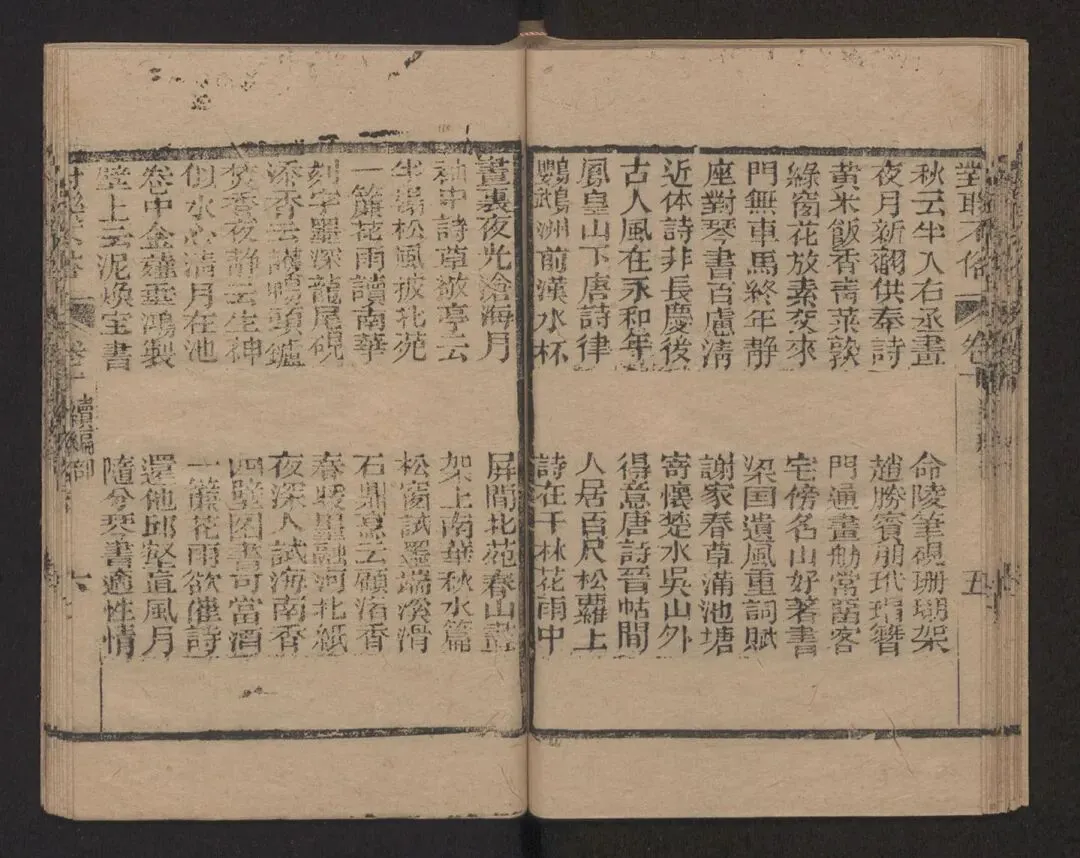 對聯不俗 卷十 五
秋云半入右丞畫
夜月新翻供奉詩
黃米飯香青菜軟
綠窗花放素交來
門無車馬終年静
座對琴書百慮清
近体詩非長慶後
古人風在永和年
鳳皇山下唐詩律
鸚鵡洲前漢水杯
命陵筆硯珊瑚架
趙勝賓朋玳瑁簪
門通畫舫常留客
宅傍名山好著書
梁国遺風重詞賦
謝家春草滿池塘
寄懷楚水吳山外
得意唐詩晉帖間
人居百尺松蘿上
詩在千林花雨中
畫裏夜光滄海月
袖中詩草敬亭云
半榻松風披北苑
一簾花雨讀南華
刻字墨深龍尾硯
添香云護鴨頭鑪
焚香夜静云生神
似水心清月在池
卷中金薤垂鴻製
壁上云泥煥宝書
屏間北苑春山畫
架上南華秋水篇
松窗試墨端溪滑
石鼎烹云顧渚香
春暖墨融河北紙
夜深人試海南香
四壁图書可當酒
一簾花雨欲催詩
還他邱壑真風月
隨兮琴書適性情
卷十 續編 六